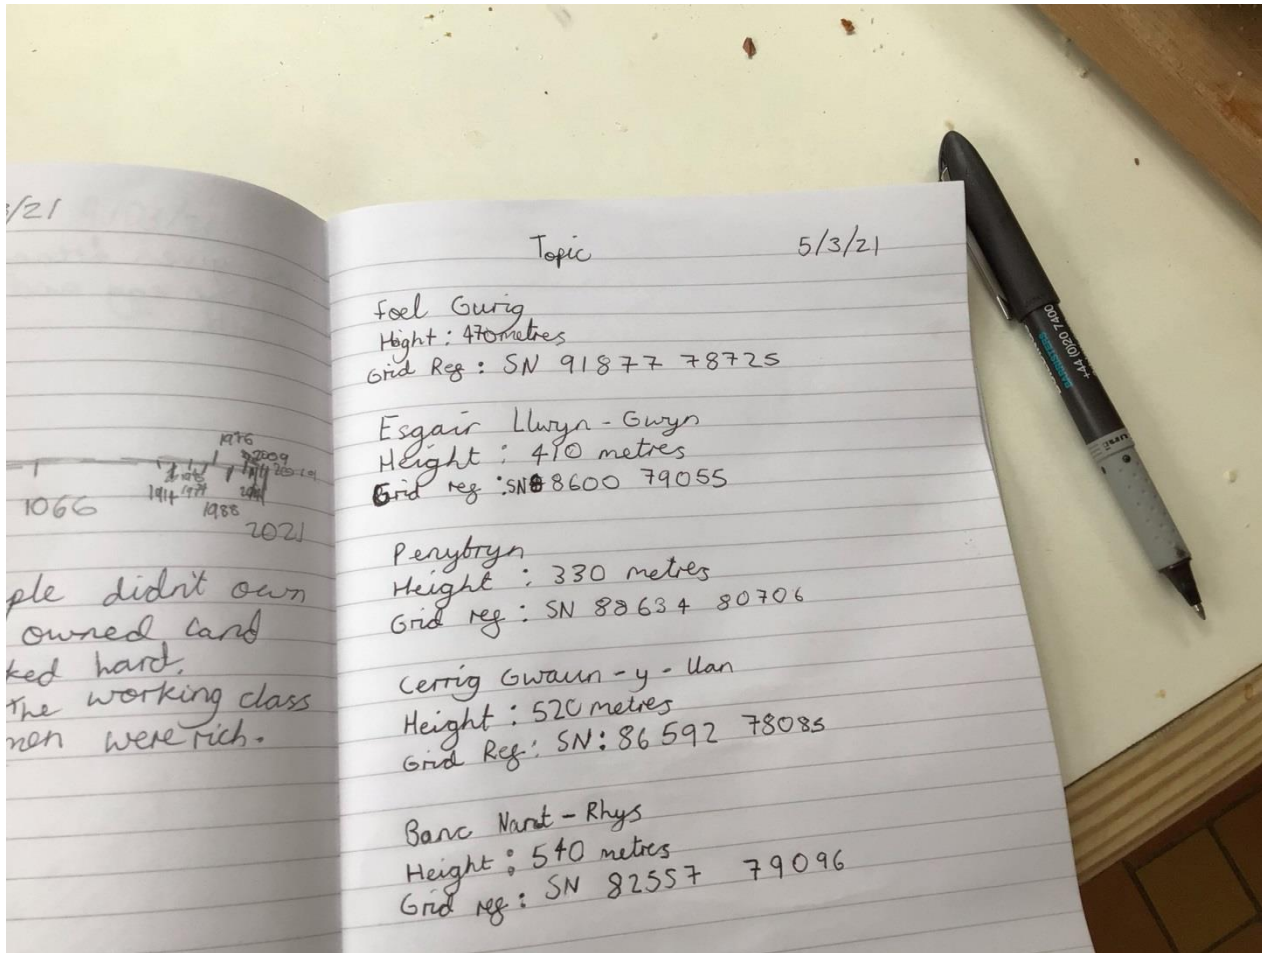 /21
1976
2009
1066
1914
1988
2021
ple didn't own
owned land
ked hard.
The working class
men were rich.
Topic 5/3/21
Foel Gurig
Hight : 470metres
Grid Reg : SN 91877 78725
Esgair Llwyn - Gwyn
Height : 410 metres
Grid reg : SN 8600 79055
Penybryn
Height : 330 metres
Grid reg : SN 88634 80706
Cerrig Gwaun - y - llan
Height : 520 metres
Grid Reg : SN: 86592 78085
Banc Nant - Rhys
Height : 540 metres
Grid reg : SN 82557 79096
+44 (0)20 7400
BARRISTERS